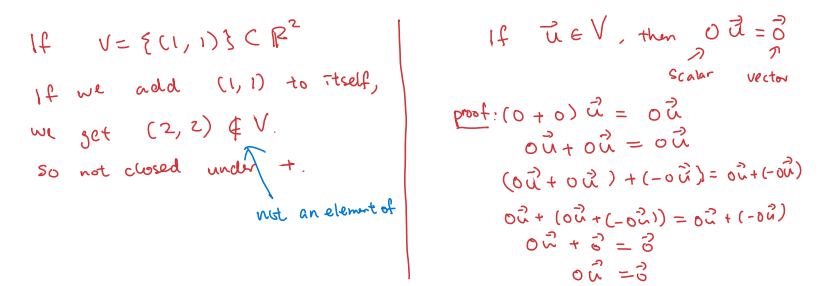 If V = {(1, 1)} ⊂ ℝ²
If we add (1, 1) to itself,
we get (2, 2) ∉ V.
so not closed under +.
not an element of
If u⃗ ∈ V, then 0 u⃗ = 0⃗
scalar vector
proof: (0 + 0) u⃗ = 0u⃗
0u⃗ + 0u⃗ = 0u⃗
(0u⃗ + 0u⃗) + (-0u⃗) = 0u⃗ + (-0u⃗)
0u⃗ + (0u⃗ + (-0u⃗)) = 0u⃗ + (-0u⃗)
0u⃗ + 0⃗ = 0⃗
0u⃗ = 0⃗